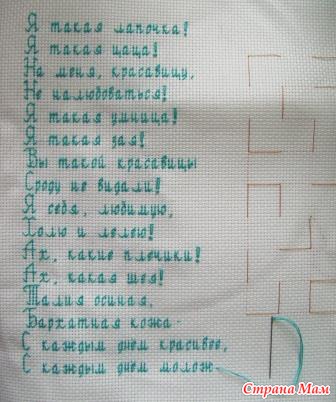 Я такая лапочка!
Я такая цаца!
На меня, красавицу,
Не налюбоваться!
Я такая умница!
Я такая зая!
Вы такой красавицы
Сроду не видали!
Я себя, любимую,
Холю и лелею!
Ах, какие плечики!
Ах, какая шея!
Талия осиная,
Бархатная кожа-
С каждым днём красивее,
С каждым днём молож-
Страна Мам